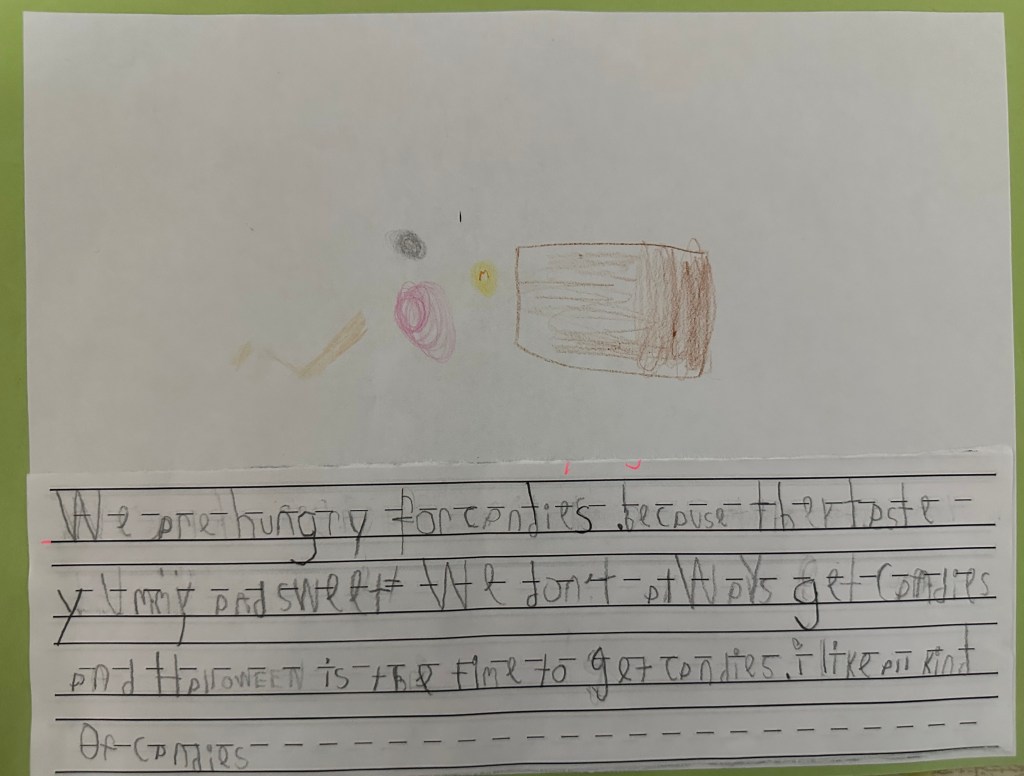 m
We are hungry for candies. because they taste
yummy and sweet We don't always get candies
and HalloWEEN is the time to get candies. i like all kind
Of candies